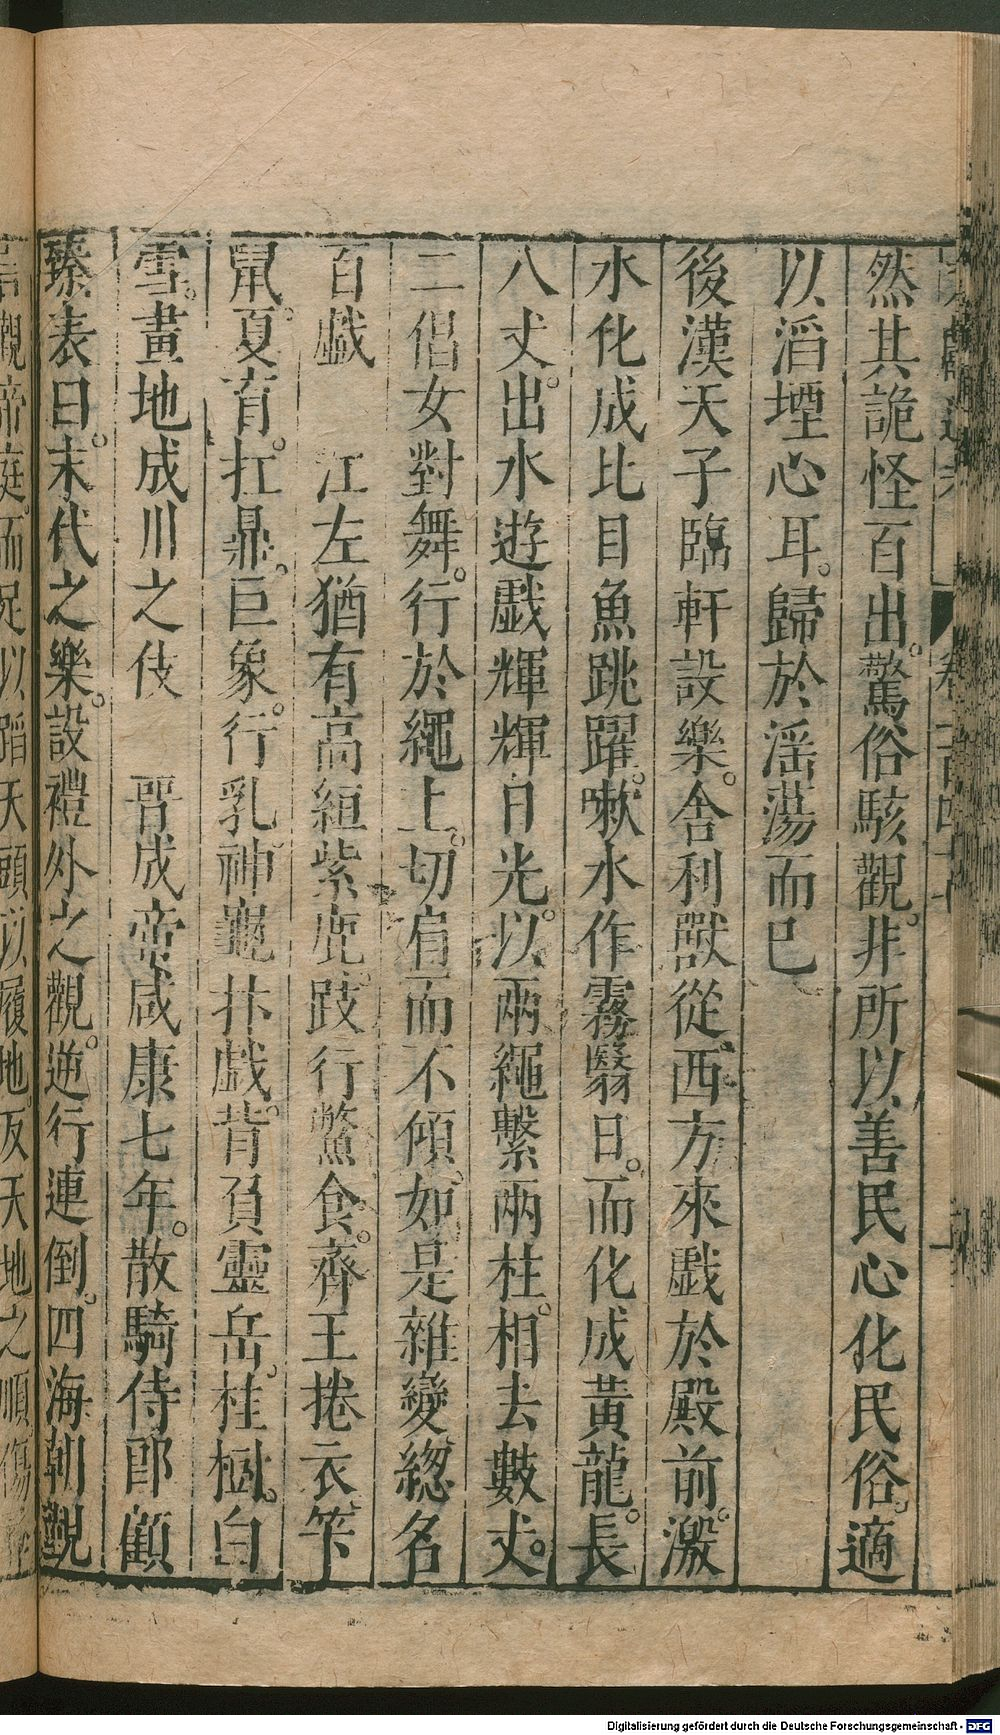 然其詭怪百出。驚俗駭觀。非所以善民心化民俗。適
以滔堙心耳。歸於淫蕩而已
後漢天子臨軒設樂。舍利獸從西方來戲於殿前。激
水化成比目魚跳躍。嗽水作霧翳日。而化成黃龍。長
八丈。出水遊戲輝輝日光。以兩繩繫兩柱。相去數丈。
二倡女對舞。行於繩上。切肩而不傾。如是雜變總名
百戲　江左猶有高絙紫鹿。跂行鱉食。齊王捲衣。笮
鼠。夏育。扛鼎。巨象。行乳。神龜抃戲。背負靈岳。桂樹。白
雪。畫地成川之伎　晉成帝咸康七年。散騎侍郎顧
臻表曰。末代之樂。設禮外之觀。逆行連倒。四海朝覲
言觀帝庭。而足以蹈天。頭以履地。反天地之順。傷
Digitalisierung gefördert durch die Deutsche Forschungsgemeinschaft - DFG